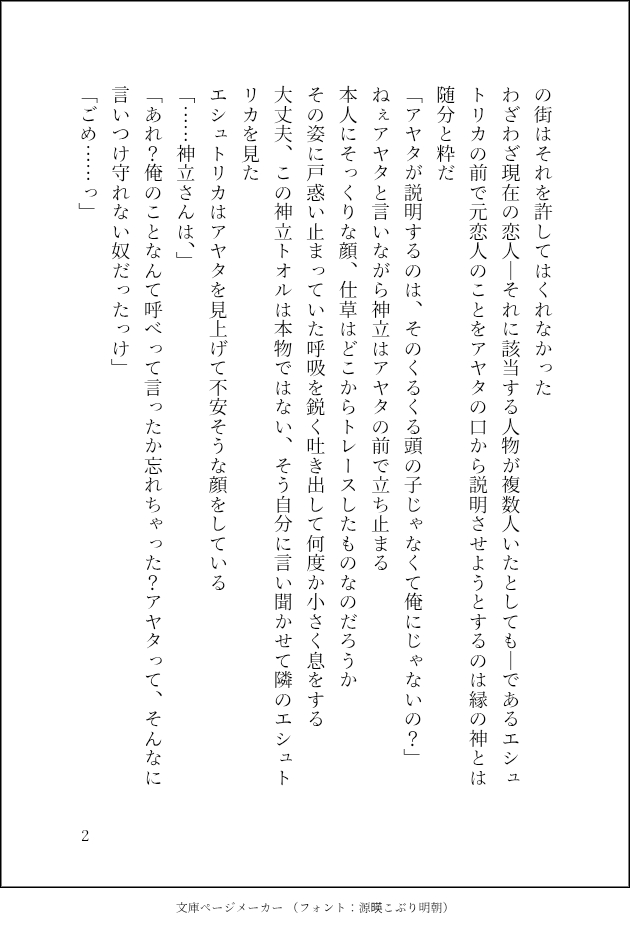 の街はそれを許してはくれなかった
わざわざ現在の恋人―それに該当する人物が複数人いたとしても―であるエシュ
トリカの前で元恋人のことをアヤタの口から説明させようとするのは縁の神とは
随分と粋だ
「アヤタが説明するのは、そのくるくる頭の子じゃなくて俺にじゃないの？」
ねぇアヤタと言いながら神立はアヤタの前で立ち止まる
本人にそっくりな顔、仕草はどこからトレースしたものなのだろうか
その姿に戸惑い止まっていた呼吸を鋭く吐き出して何度か小さく息をする
大丈夫、この神立トオルは本物ではない、そう自分に言い聞かせて隣のエシュト
リカを見た
エシュトリカはアヤタを見上げて不安そうな顔をしている
「……神立さんは、」
「あれ？俺のことなんて呼べって言ったか忘れちゃった？アヤタって、そんなに
言いつけ守れない奴だったっけ」
「ごめ……っ」
2
文庫ページメーカー（フォント：源暎こぶり明朝）